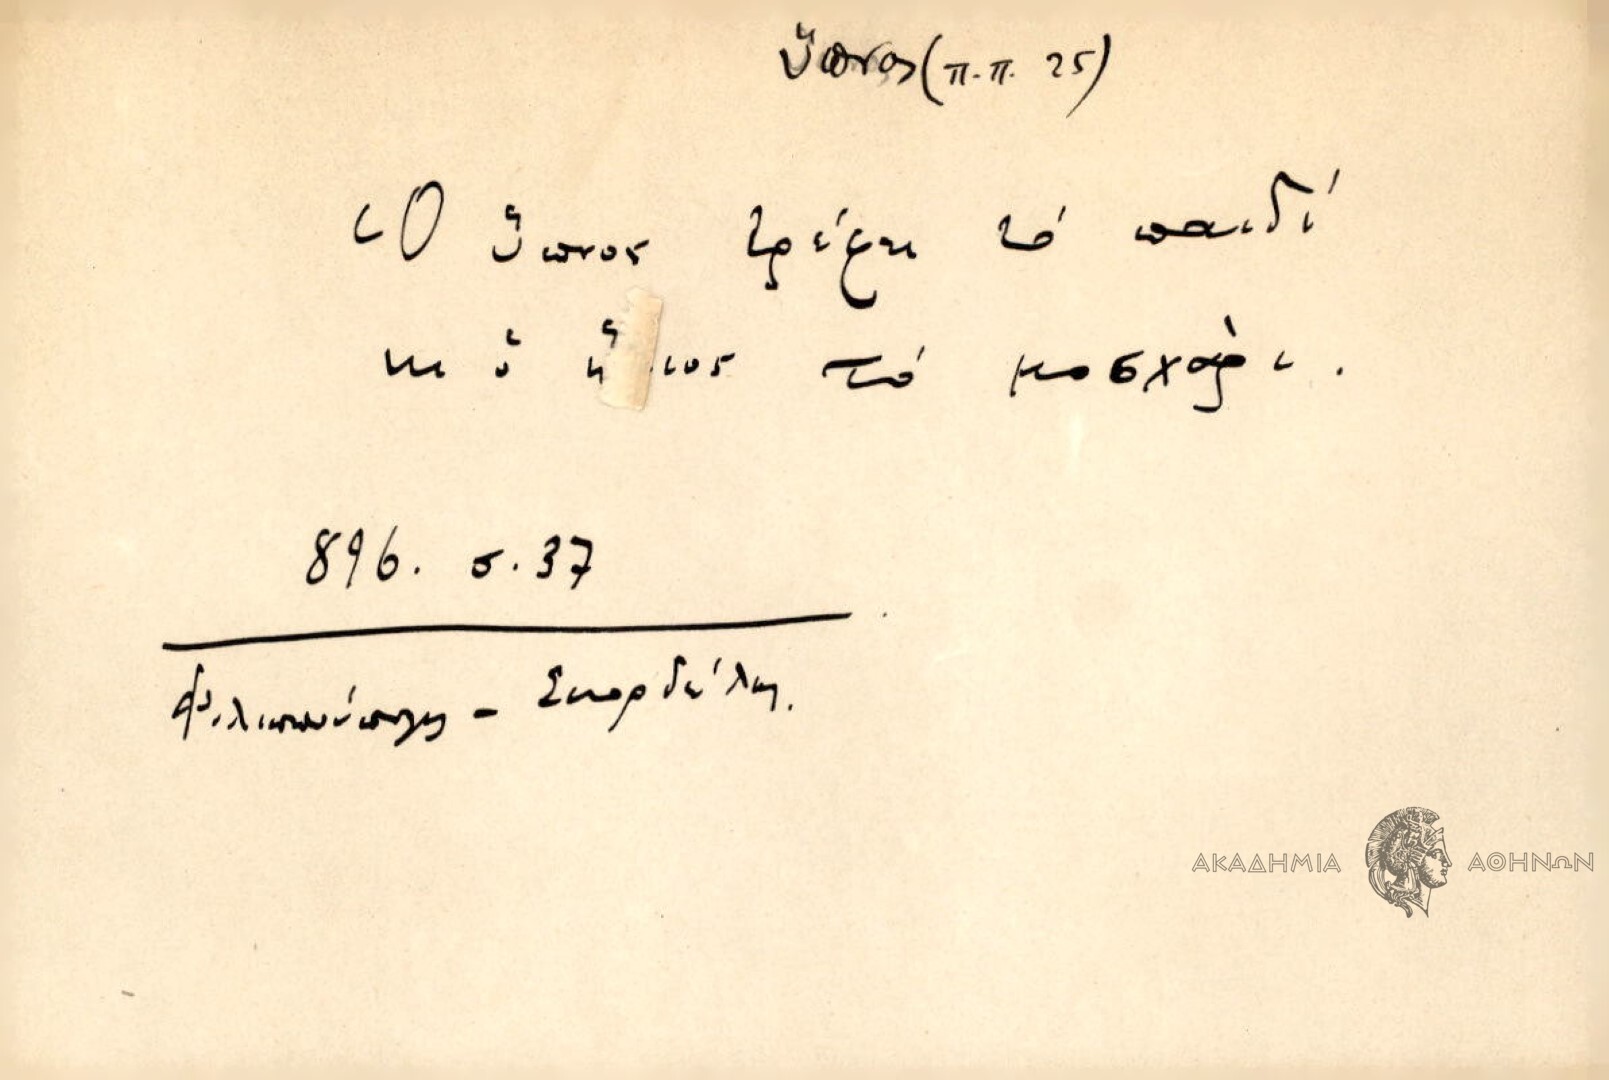 ὕπνος (π.π. 25)
Ὁ ὕπνος τρέφει τό παιδί
κι ὁ ἥλιος τό μοσχάρι.
896. σ. 37
Φιλιππούπολη - Σκορδέλη.
ΑΚΑΔΗΜΙΑ ΑΘΗΝΩΝ